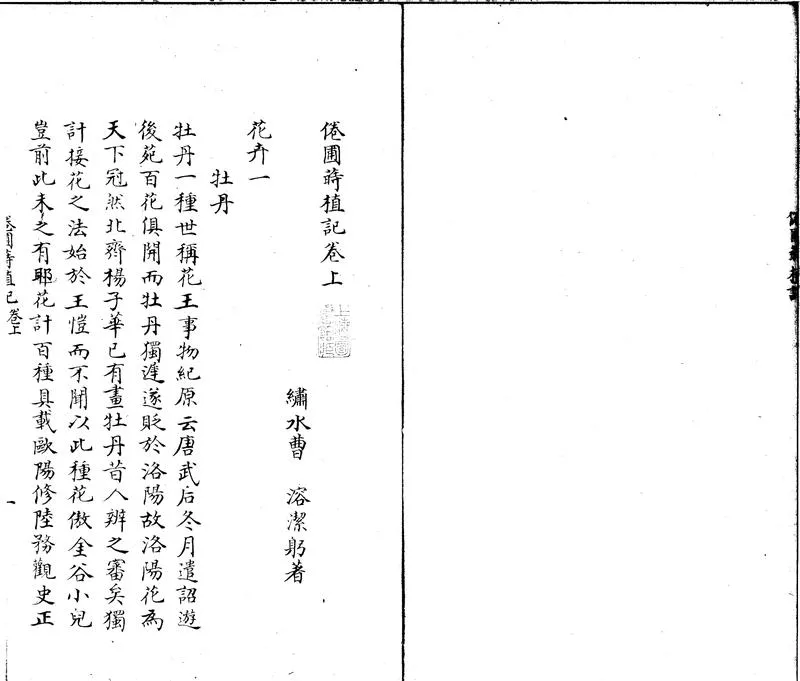 倦圃蒔植記卷上
繡水曹 溶潔躬著
花卉一
牡丹
牡丹一種世稱花王事物紀原云唐武后冬月遣詔遊
後苑百花俱開而牡丹獨遲遂貶於洛陽故洛陽花為
天下冠然北齊楊子華已有畫牡丹昔人辨之審矣獨
計接花之法始於王愷而不聞以此種花傲金谷小兒
豈前此未之有耶花計百種具載歐陽修陸務觀史正
倦圃蒔植記 卷上
一